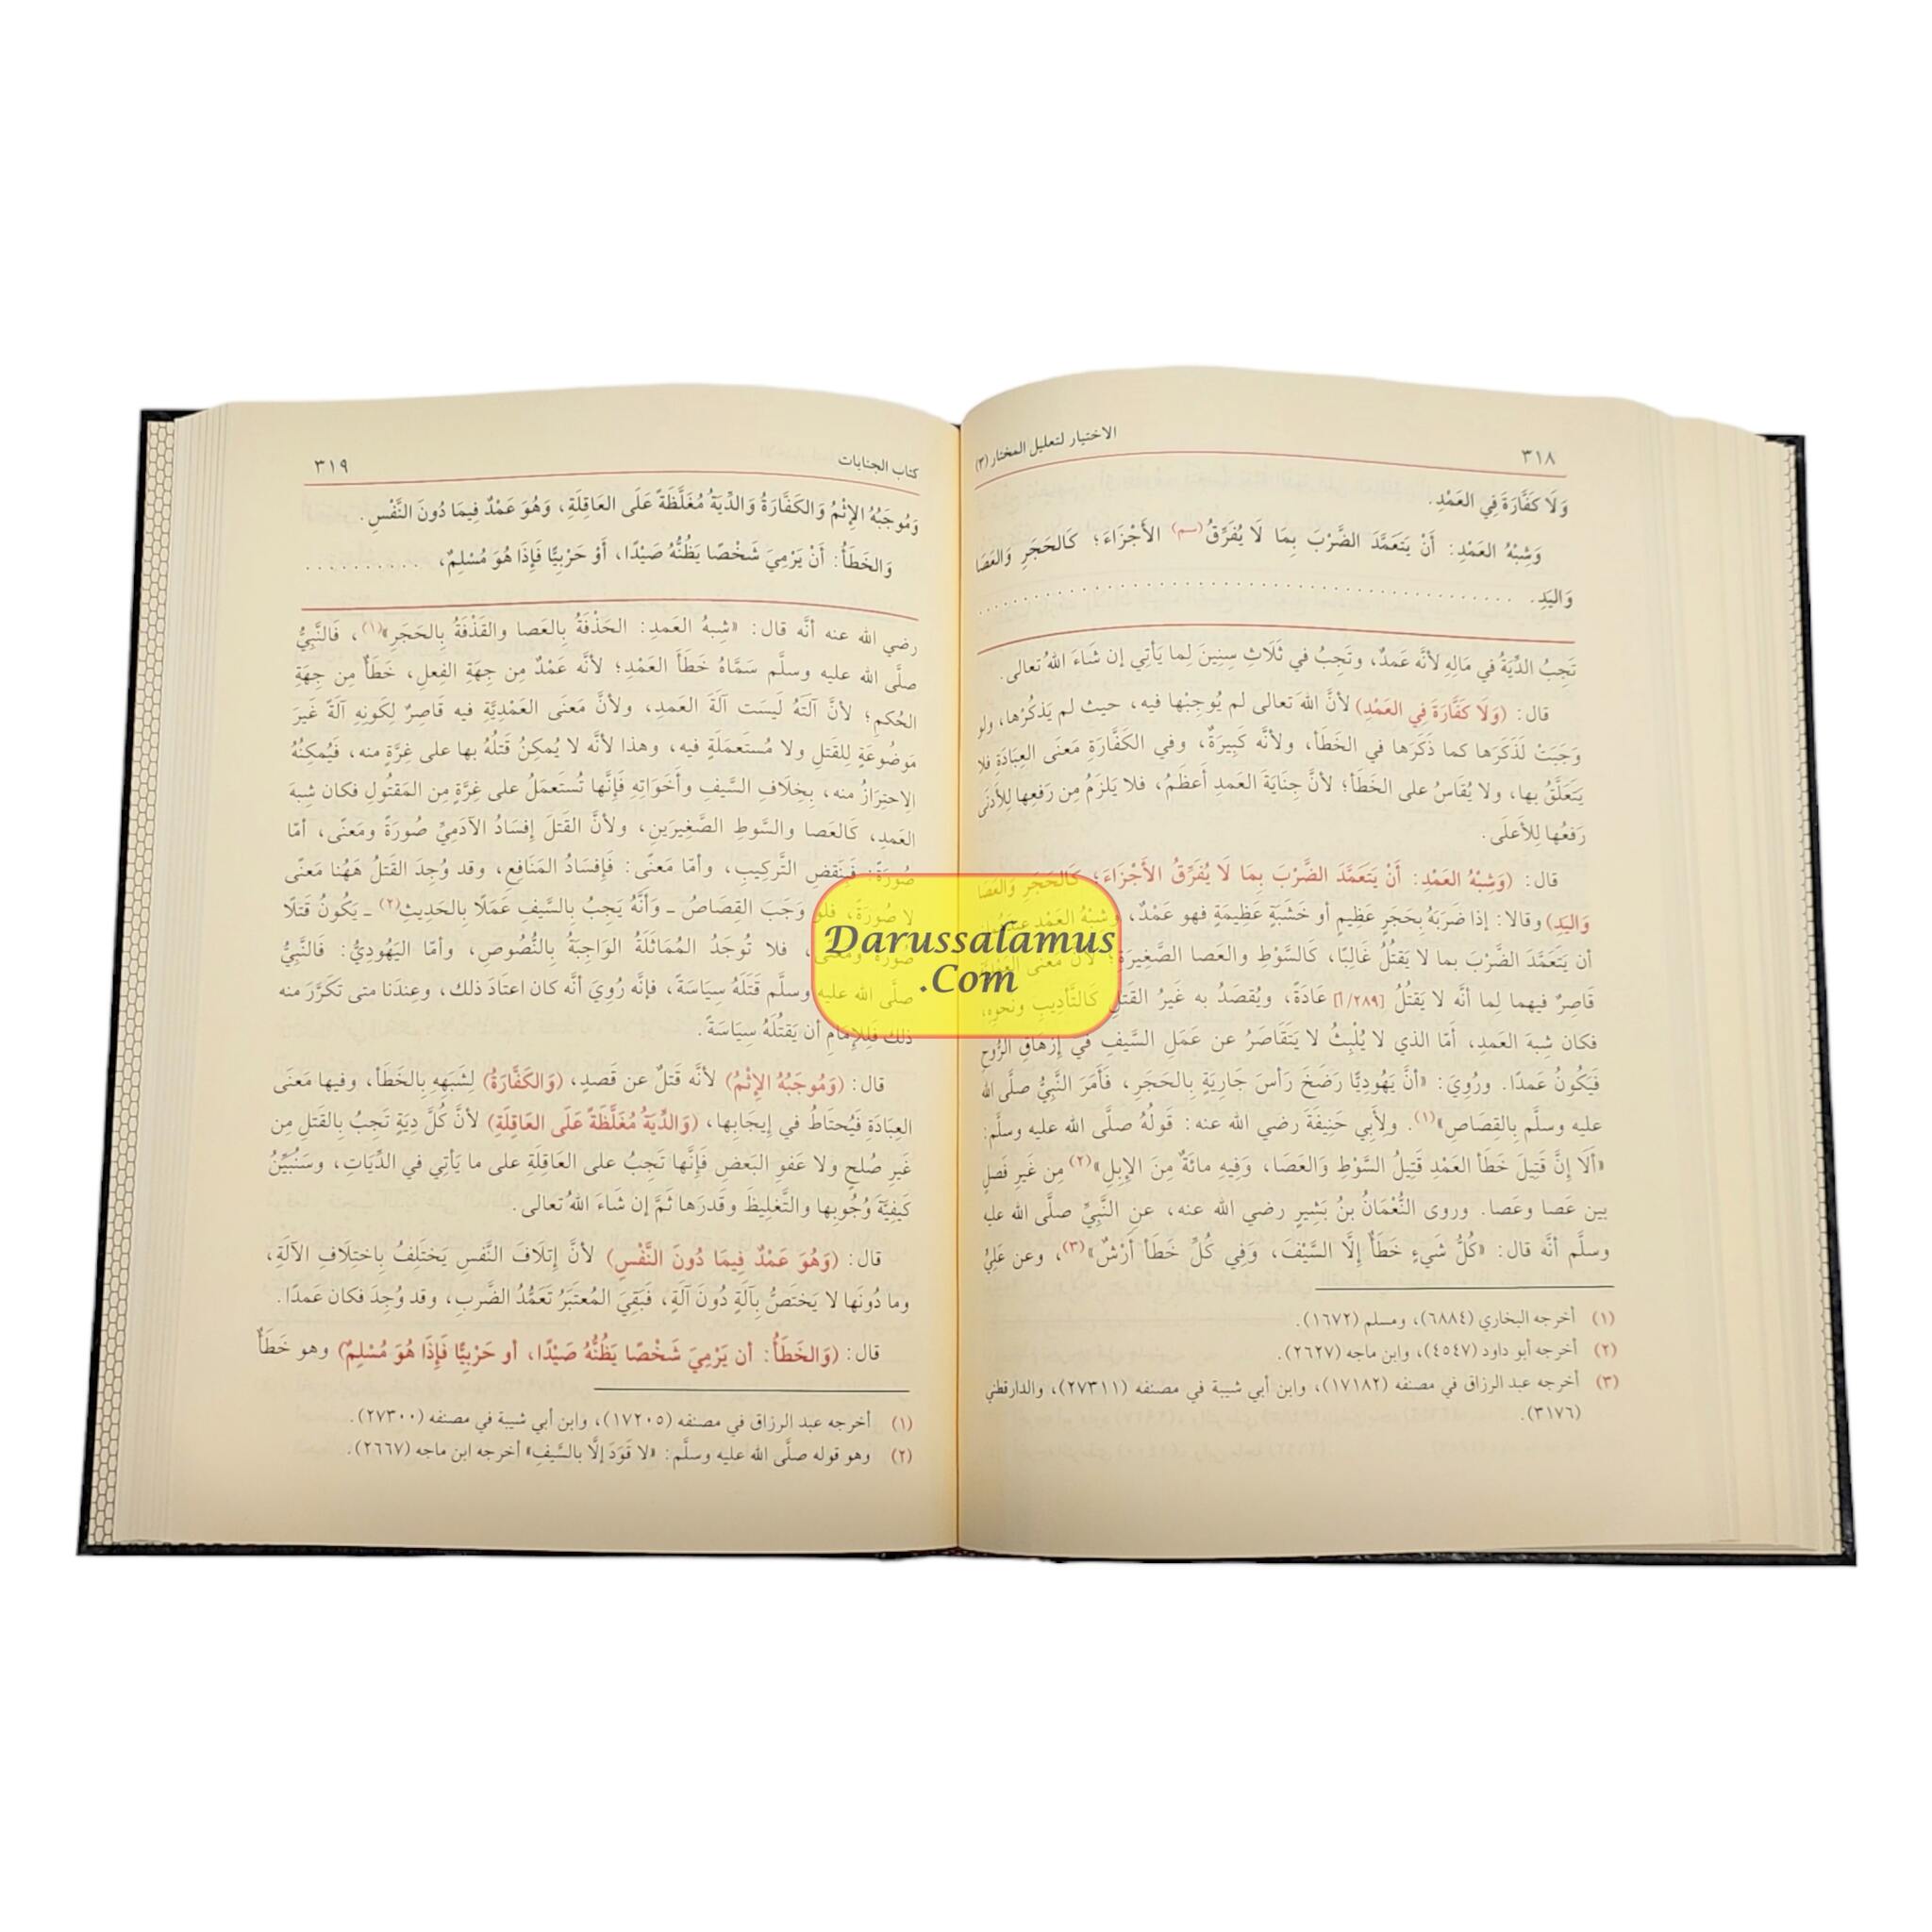 ٣١٨
الاختيار لتعليل المختار (٣)
وَلَا كَفَّارَةَ فِي العَمْدِ.
وَشِبْهُ العَمْدِ: أَنْ يَتَعَمَّدَ الضَّرْبَ بِمَا لَا يُفَرِّقُ (سم) الأَجْزَاءَ؛ كَالحَجَرِ وَالعَصَا
وَاليَدِ. . . . . . . . . . . . . . . . . . . . . . . . . . . . . . . . . . . . . . . . .
تَجِبُ الدِّيَةُ في مَالِهِ لأنَّه عَمدٌ، وتَجِبُ في ثَلَاثِ سِنِينَ لِما يَأتِي إن شَاءَ اللهُ تعالى.
قال: (وَلَا كَفَّارَةَ فِي العَمْدِ) لأنَّ اللهَ تعالى لم يُوجِبْها فيه، حيث لم يَذكُرْها، ولو
وَجَبَتْ لَذَكَرَها كما ذَكَرَها في الخَطَأ، ولأنَّه كَبِيرَةٌ، وفي الكَفَّارَةِ مَعنَى العِبَادَةِ فلا
يَتَعَلَّقُ بها، ولا يُقَاسُ على الخَطَأ؛ لأنَّ جِنَايَةَ العَمدِ أَعظَمُ، فلا يَلزَمُ مِن رَفعِها لِلأَدنَى
رَفعُها لِلأَعلَى.
قال: (وَشِبْهُ العَمْدِ: أَنْ يَتَعَمَّدَ الضَّرْبَ بِمَا لَا يُفَرِّقُ الأَجْزَاءَ؛ كَالحَجَرِ وَالعَصَا
وَاليَدِ) وقالا: إذا ضَرَبَهُ بِحَجَرٍ عَظِيمٍ أو خَشَبَةٍ عَظِيمَةٍ فهو عَمْدٌ، وشِبْهُ العَمْدِ عندَهُما
أن يَتَعَمَّدَ الضَّرْبَ بما لا يَقتُلُ غَالِبًا، كَالسَّوْطِ والعَصا الصَّغِيرَةِ؛ لأنَّ مَعنَى العَمْدِيَّةِ
قَاصِرٌ فيهما لِما أنَّه لا يَقتُلُ [٢٨٩/أ] عَادَةً، ويُقصَدُ به غَيرُ القَتلِ كَالتَّأدِيبِ ونَحوِهِ،
فكان شِبهَ العَمدِ، أمّا الذي لا يُلْبِثُ لا يَتَقَاصَرُ عن عَمَلِ السَّيفِ في إِزهَاقِ الرُّوحِ
فَيَكُونُ عَمدًا. ورُوِيَ: «أنَّ يَهُودِيًّا رَضَخَ رَأسَ جَارِيَةٍ بِالحَجَرِ، فَأَمَرَ النَّبِيُّ صلَّى الله
عليه وسلَّم بِالقِصَاصِ»(١). ولِأَبِي حَنِيفَةَ رضي الله عنه: قَولُهُ صلَّى الله عليه وسلَّم:
«أَلَا إِنَّ قَتِيلَ خَطَأ العَمْدِ قَتِيلُ السَّوْطِ وَالعَصَا، وَفِيهِ مائَةٌ مِنَ الإِبِلِ»(٢) مِن غَيرِ فَصلٍ
بين عَصا وعَصا. وروى النُّعْمَانُ بنُ بَشِيرٍ رضي الله عنه، عنِ النَّبِيِّ صلَّى الله عليه
وسلَّم أنَّه قال: «كُلُّ شَيءٍ خَطَأٌ إِلَّا السَّيْفَ، وَفِي كُلِّ خَطَأ أَرْشٌ»(٣)، وعن عَلِيٍّ
(١) أخرجه البخاري (٦٨٨٤)، ومسلم (١٦٧٢).
(٢) أخرجه أبو داود (٤٥٤٧)، وابن ماجه (٢٦٢٧).
(٣) أخرجه عبد الرزاق في مصنفه (١٧١٨٢)، وابن أبي شيبة في مصنفه (٢٧٣١١)، والدارقطني
(٣١٧٦).
كتاب الجنايات
٣١٩
وَمُوجَبُهُ الإِثْمُ وَالكَفَّارَةُ وَالدِّيَةُ مُغَلَّظَةً عَلَى العَاقِلَةِ، وَهُوَ عَمْدٌ فِيمَا دُونَ النَّفْسِ.
وَالخَطَأُ: أَنْ يَرْمِيَ شَخْصًا يَظُنُّهُ صَيْدًا، أَوْ حَرْبِيًّا فَإِذَا هُوَ مُسْلِمٌ، . . . . . . . . . .
رضي الله عنه أنَّه قال: «شِبهُ العَمدِ: الحَذْفَةُ بِالعَصا والقَذْفَةُ بِالحَجَرِ»(١)، فَالنَّبِيُّ
صلَّى الله عليه وسلَّم سَمَّاهُ خَطَأَ العَمْدِ؛ لأنَّه عَمْدٌ مِن جِهَةِ الفِعلِ، خَطَأٌ مِن جِهَةِ
الحُكمِ؛ لأنَّ آلَتَهُ لَيسَت آلَةَ العَمدِ، ولأنَّ مَعنَى العَمْدِيَّةِ فيه قَاصِرٌ لِكَونِهِ آلَةً غَيرَ
مَوضُوعَةٍ لِلقَتلِ ولا مُستَعمَلَةٍ فيه، وهذا لأنَّه لا يُمكِنُ قَتلُهُ بها على غِرَّةٍ منه، فَيُمكِنُهُ
الِاحتِرَازُ منه، بِخِلَافِ السَّيفِ وأَخَوَاتِهِ فَإِنَّها تُستَعمَلُ على غِرَّةٍ مِن المَقتُولِ فكان شِبهَ
العَمدِ، كَالعَصا والسَّوطِ الصَّغِيرَينِ، ولأنَّ القَتلَ إِفسَادُ الآدَمِيِّ صُورَةً ومَعنًى، أمّا
صُورَةً: فَبِنَقضِ التَّركِيبِ، وأمّا مَعنًى: فَإِفسَادُ المَنَافِعِ، وقد وُجِدَ القَتلُ هَهُنا مَعنًى
لا صُورَةً، فلو وَجَبَ القِصَاصُ ـ وَأنَّهُ يَجِبُ بالسَّيفِ عَمَلًا بِالحَدِيثِ(٢) ـ يَكُونُ قَتلًا
صُورَةً ومَعنًى، فلا تُوجَدُ المُمَاثَلَةُ الوَاجِبَةُ بِالنُّصُوصِ، وأمّا اليَهُودِيُّ: فَالنَّبِيُّ
صلَّى الله عليه وسلَّم قَتَلَهُ سِيَاسَةً، فإنَّه رُوِيَ أنَّه كان اعتَادَ ذلك، وعِندَنا متى تَكَرَّرَ منه
ذلك فَلِلإِمَامِ أن يَقتُلَهُ سِيَاسَةً.
قال: (وَمُوجَبُهُ الإِثْمُ) لأنَّه قَتلٌ عن قَصدٍ، (وَالكَفَّارَةُ) لِشَبَهِهِ بِالخَطَأ، وفيها مَعنَى
العِبَادَةِ فَيُحتَاطُ في إِيجَابِها، (وَالدِّيَةُ مُغَلَّظَةً عَلَى العَاقِلَةِ) لأنَّ كُلَّ دِيَةٍ تَجِبُ بِالقَتلِ مِن
غَيرِ صُلحٍ ولا عَفوِ البَعضِ فَإِنَّها تَجِبُ على العَاقِلَةِ على ما يَأتِي في الدِّيَاتِ، وسَنُبَيِّنُ
كَيفِيَّةَ وُجُوبِها والتَّغلِيظَ وقَدرَها ثَمَّ إن شَاءَ اللهُ تعالى.
قال: (وَهُوَ عَمْدٌ فِيمَا دُونَ النَّفْسِ) لأنَّ إِتلَافَ النَّفسِ يَختَلِفُ بِاختِلَافِ الآلَةِ،
وما دُونَها لا يَختَصُّ بِآلَةٍ دُونَ آلَةٍ، فَبَقِيَ المُعتَبَرُ تَعَمُّدُ الضَّربِ، وقد وُجِدَ فكان عَمدًا.
قال: (وَالخَطَأُ: أن يَرْمِيَ شَخْصًا يَظُنُّهُ صَيْدًا، أو حَرْبِيًّا فَإِذَا هُوَ مُسْلِمٌ) وهو خَطَأٌ
(١) أخرجه عبد الرزاق في مصنفه (١٧٢٠٥)، وابن أبي شيبة في مصنفه (٢٧٣٠٠).
(٢) وهو قوله صلَّى الله عليه وسلَّم: «لا قَوَدَ إلَّا بالسَّيفِ» أخرجه ابن ماجه (٢٦٦٧).
Darussalamus
.Com